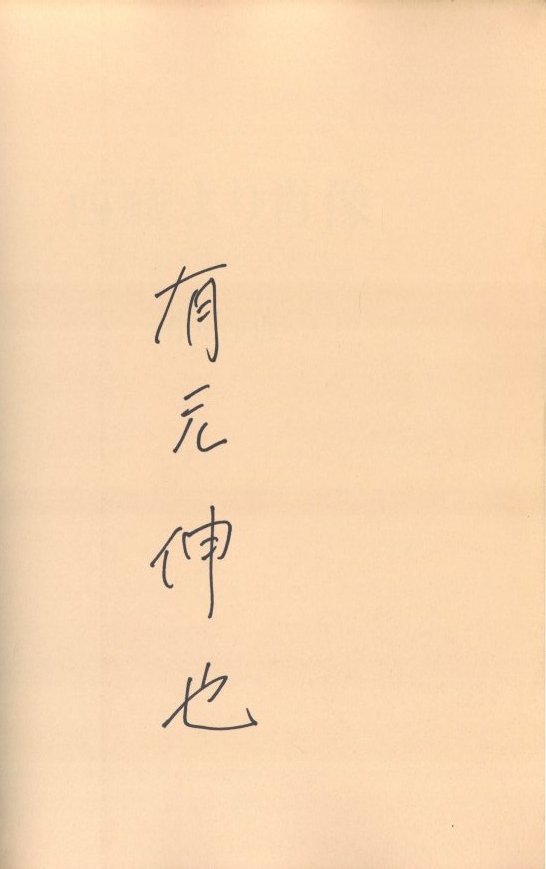 有元伸也